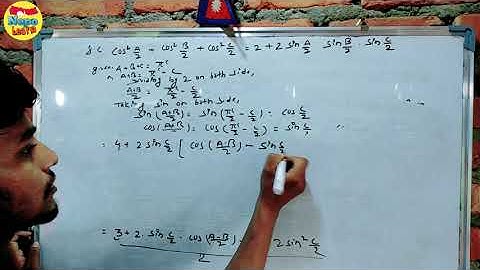 Nepo
Learn
8.c cos² A/2 + cos² B/2 + cos² C/2 = 2 + 2 sin A/2 sin B/2 . sin C/2
given, A+B+C = πᶜ
or, A+B = πᶜ - C
Dividing by 2 on both side,
A+B/2 = πᶜ/2 - C/2
Taking sin on both side,
sin (A+B/2) = sin (πᶜ/2 - C/2) = cos C/2
cos (A+B/2) = cos (πᶜ/2 - C/2) = sin C/2
= 4 + 2 sin C/2 [ cos (A-B/2) - sin C/2
= 3 + 2 . sin C/2 . cos (A-B/2) - 2 sin² C/2
2